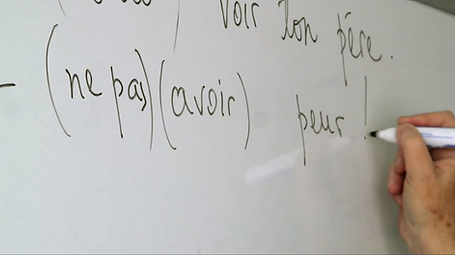 ) voir ton père.
- (ne pas) (avoir) peur !